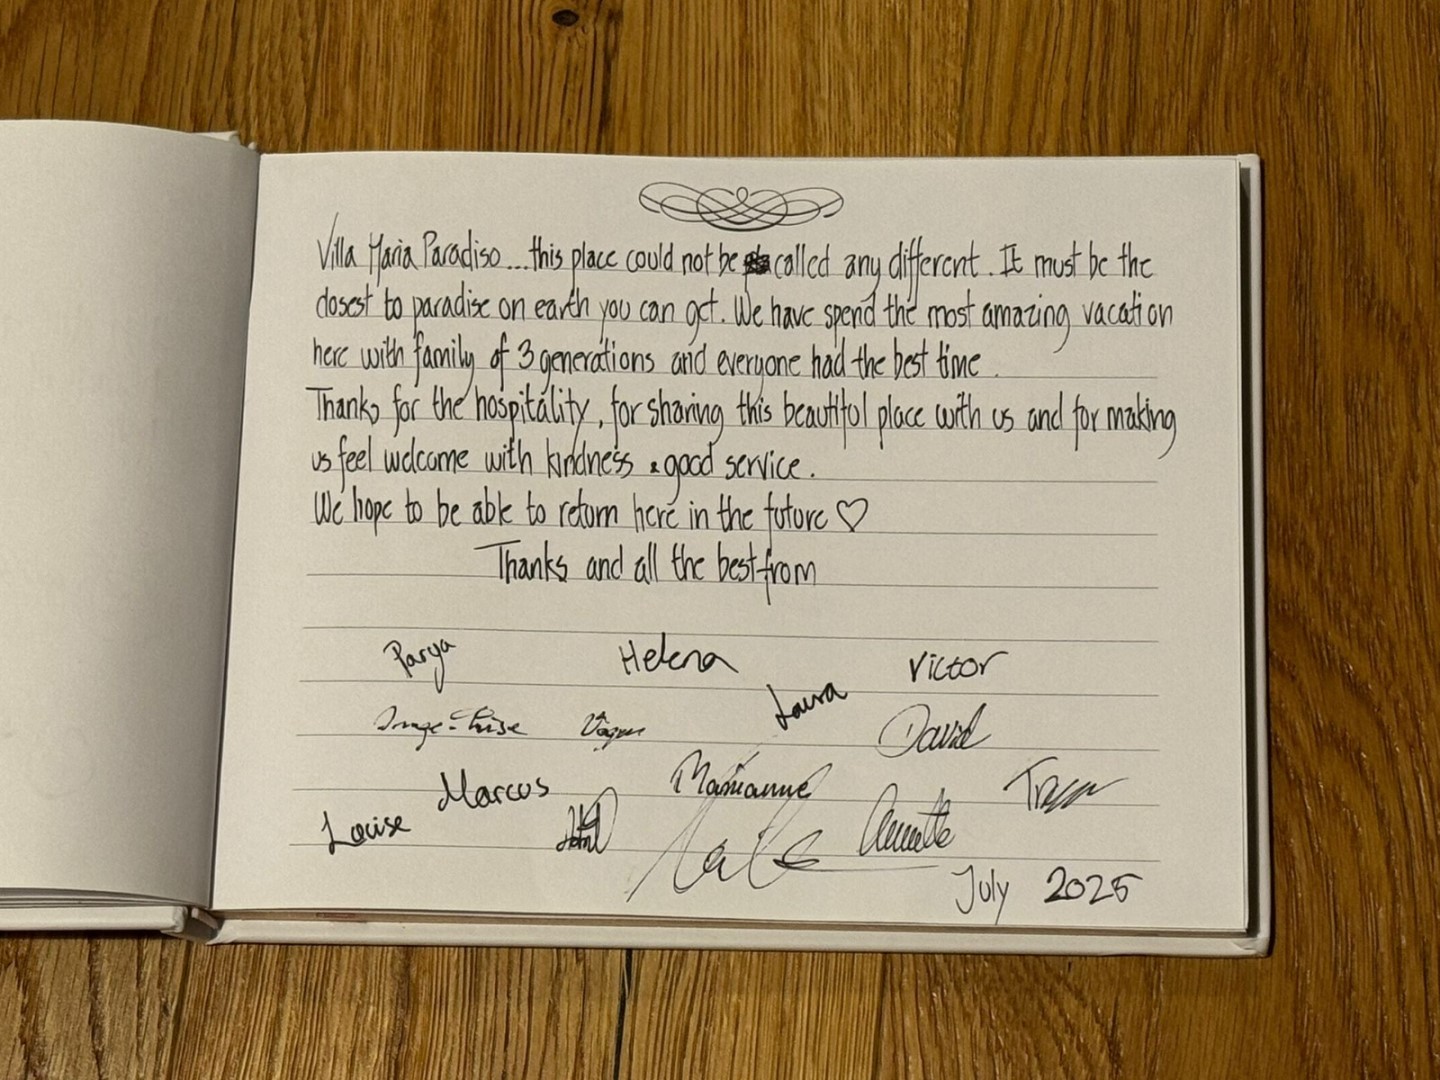 Villa Maria Paradiso...this place could not be called any different. It must be the
closest to paradise on earth you can get. We have spend the most amazing vacation
here with family of 3 generations and everyone had the best time.
Thanks for the hospitality, for sharing this beautiful place with us and for making
us feel welcome with kindness & good service.
We hope to be able to return here in the future ♡
Thanks and all the best from
Parya Helena Victor
Laura
Inge-Lise David
Marcus Marianne
Louise Annette
July 2025